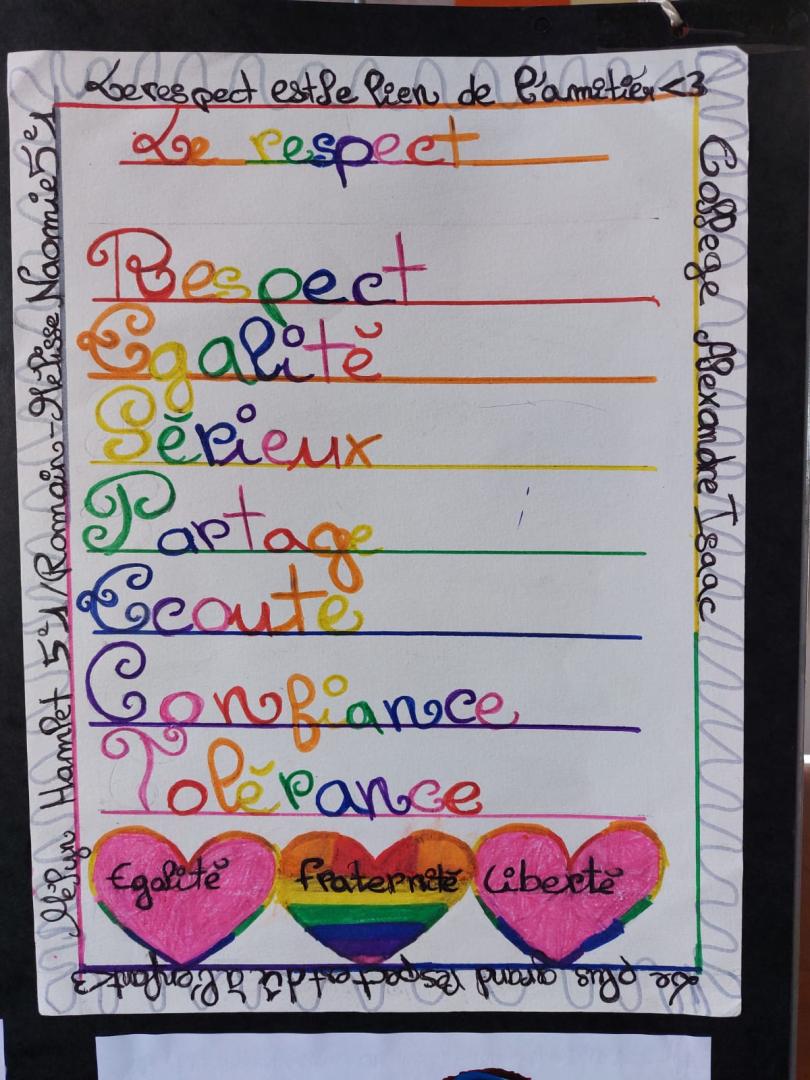 Le respect est le lien de l'amitiér <3
Le respect
Respect
Egalité
Sérieux
Partage
Ecoute
Confiance
Tolérance
Egalité fraternité Liberté
Le plus grand respect est dû à l'enfant <3
Hamlet 5e1/Romain-Mélisse Naomie 5e1
College Alexandre Isaac